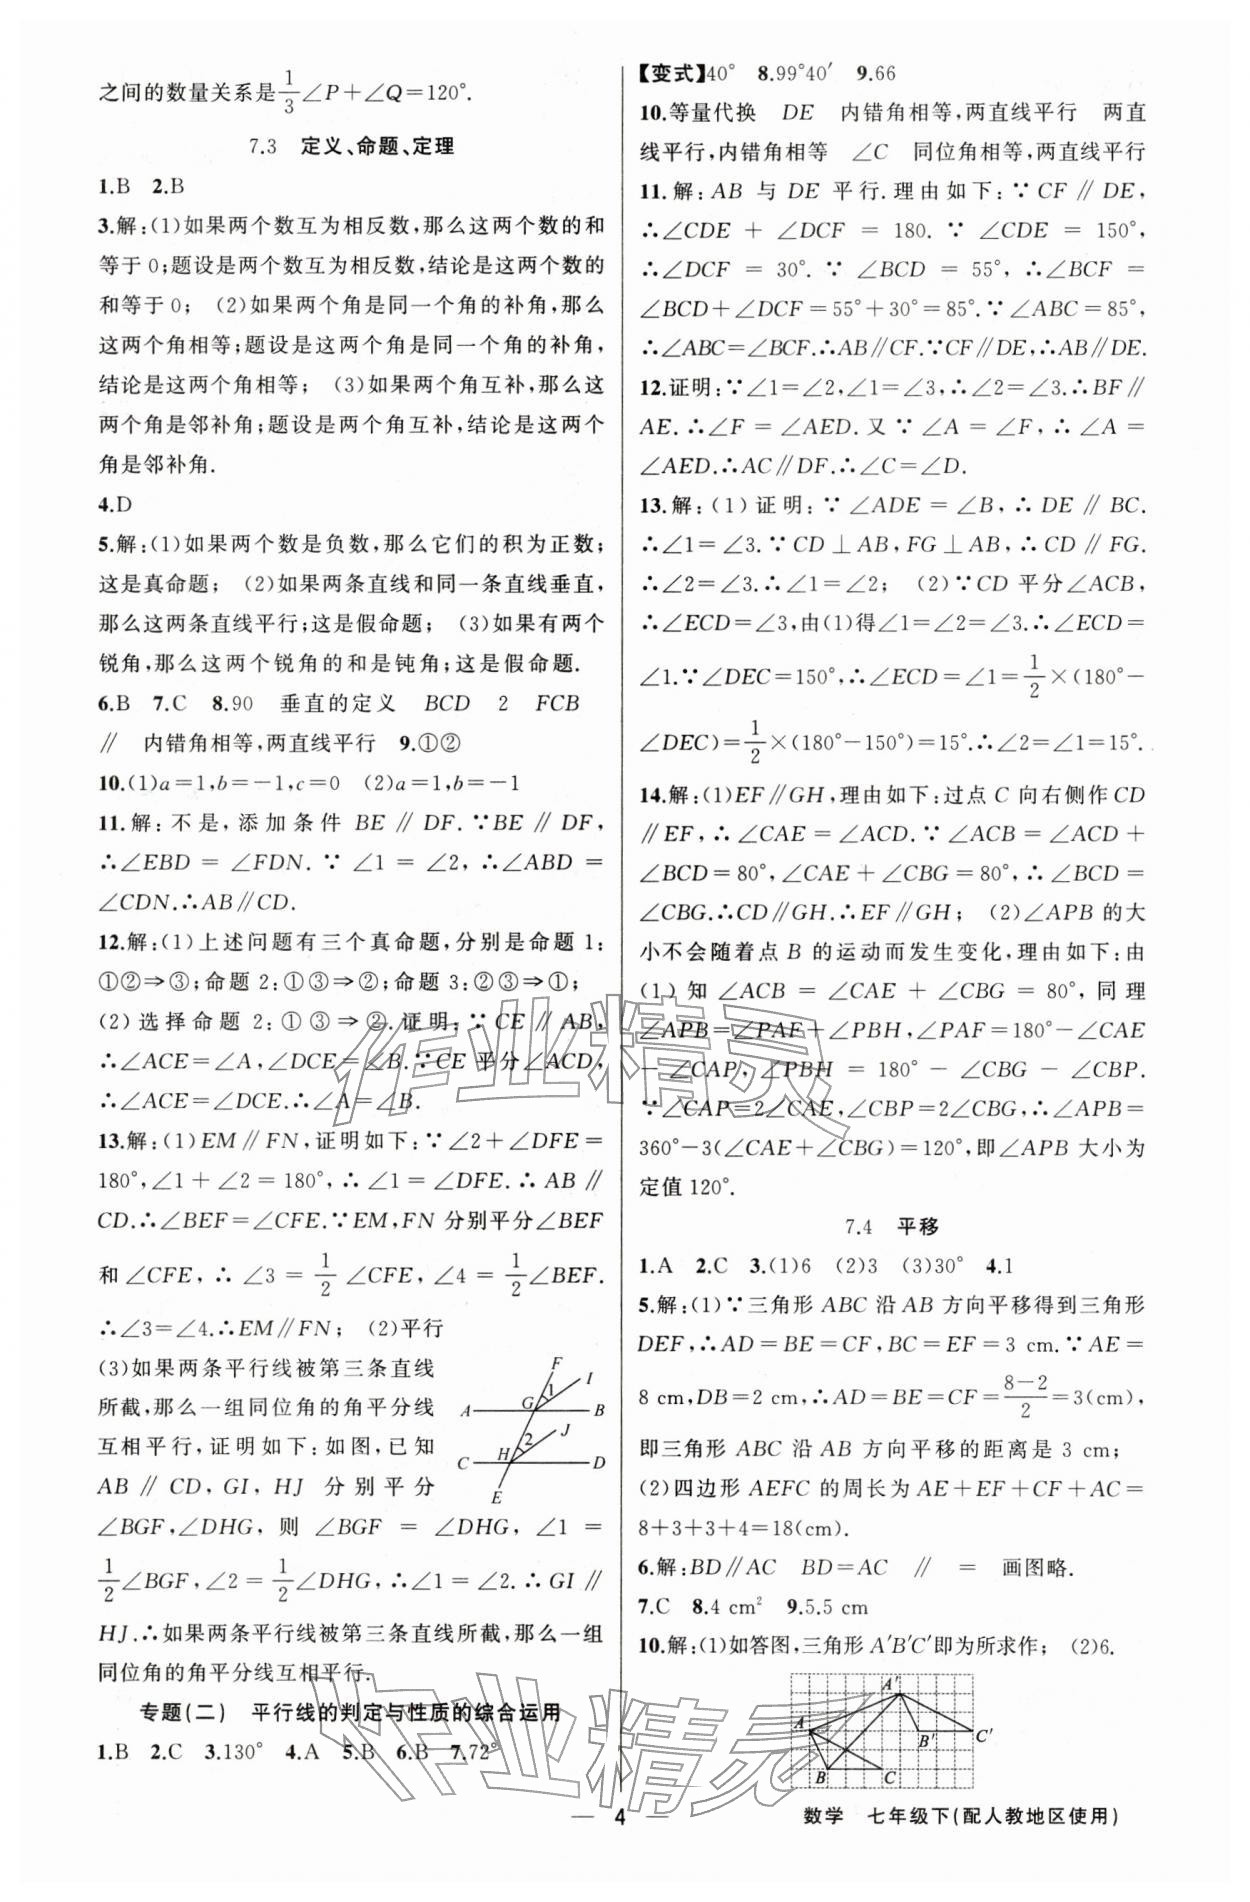 之间的数量关系是1/3∠P+∠Q=120°.
7.3 定义、命题、定理
1.B 2.B
3.解:(1)如果两个数互为相反数,那么这两个数的和
等于0;题设是两个数互为相反数,结论是这两个数的
和等于0; (2)如果两个角是同一个角的补角,那么
这两个角相等;题设是这两个角是同一个角的补角,
结论是这两个角相等; (3)如果两个角互补,那么这
两个角是邻补角;题设是两个角互补,结论是这两个
角是邻补角.
4.D
5.解:(1)如果两个数是负数,那么它们的积为正数;
这是真命题; (2)如果两条直线和同一条直线垂直,
那么这两条直线平行;这是假命题; (3)如果有两个
锐角,那么这两个锐角的和是钝角;这是假命题.
6.B 7.C 8.90 垂直的定义 BCD 2 FCB
∥ 内错角相等,两直线平行 9.①②
10.(1)a=1,b=-1,c=0 (2)a=1,b=-1
11.解:不是,添加条件 BE∥DF.∵BE∥DF,
∴∠EBD=∠FDN.∵∠1=∠2,∴∠ABD=
∠CDN.∴AB∥CD.
12.解:(1)上述问题有三个真命题,分别是命题1:
①②⇒③;命题2:①③⇒②;命题3:②③⇒①;
(2)选择命题2:①③⇒②.证明:∵CE∥AB,
∴∠ACE=∠A,∠DCE=∠B.∵CE平分∠ACD,
∴∠ACE=∠DCE.∴∠A=∠B.
13.解:(1)EM∥FN,证明如下:∵∠2+∠DFE=
180°,∠1+∠2=180°,∴∠1=∠DFE.∴AB∥
CD.∴∠BEF=∠CFE.∵EM,FN分别平分∠BEF
和∠CFE,∴∠3=1/2∠CFE,∠4=1/2∠BEF.
∴∠3=∠4.∴EM∥FN; (2)平行
(3)如果两条平行线被第三条直线
所截,那么一组同位角的角平分线
互相平行,证明如下:如图,已知
AB∥CD,GI,HJ分别平分
∠BGF,∠DHG,则∠BGF=∠DHG,∠1=
1/2∠BGF,∠2=1/2∠DHG,∴∠1=∠2.∴GI∥
HJ.∴如果两条平行线被第三条直线所截,那么一组
同位角的角平分线互相平行.
F
I
1
G
A
B
J
2
H
C
D
E
专题(二) 平行线的判定与性质的综合运用
1.B 2.C 3.130° 4.A 5.B 6.B 7.72°
【变式】40° 8.99°40′ 9.66
10.等量代换 DE 内错角相等,两直线平行 两直
线平行,内错角相等 ∠C 同位角相等,两直线平行
11.解:AB与DE平行.理由如下:∵CF∥DE,
∴∠CDE+∠DCF=180.∵∠CDE=150°,
∴∠DCF=30°.∵∠BCD=55°,∴∠BCF=
∠BCD+∠DCF=55°+30°=85°.∵∠ABC=85°,
∴∠ABC=∠BCF.∴AB∥CF.∵CF∥DE,∴AB∥DE.
12.证明:∵∠1=∠2,∠1=∠3,∴∠2=∠3.∴BF∥
AE.∴∠F=∠AED.又∵∠A=∠F,∴∠A=
∠AED.∴AC∥DF.∴∠C=∠D.
13.解:(1)证明:∵∠ADE=∠B,∴DE∥BC.
∴∠1=∠3.∵CD⊥AB,FG⊥AB,∴CD∥FG.
∴∠2=∠3.∴∠1=∠2; (2)∵CD平分∠ACB,
∴∠ECD=∠3,由(1)得∠1=∠2=∠3.∴∠ECD=
∠1.∵∠DEC=150°,∴∠ECD=∠1=1/2×(180°-
∠DEC)=1/2×(180°-150°)=15°.∴∠2=∠1=15°.
14.解:(1)EF∥GH,理由如下:过点C向右侧作CD
∥EF,∴∠CAE=∠ACD.∵∠ACB=∠ACD+
∠BCD=80°,∠CAE+∠CBG=80°,∴∠BCD=
∠CBG.∴CD∥GH.∴EF∥GH; (2)∠APB的大
小不会随着点B的运动而发生变化,理由如下:由
(1)知∠ACB=∠CAE+∠CBG=80°,同理
∠APB=∠PAF+∠PBH,∠PAF=180°-∠CAE
-∠CAP,∠PBH=180°-∠CBG-∠CBP.
∵∠CAP=2∠CAE,∠CBP=2∠CBG,∴∠APB=
360°-3(∠CAE+∠CBG)=120°,即∠APB大小为
定值120°.
7.4 平移
1.A 2.C 3.(1)6 (2)3 (3)30° 4.1
5.解:(1)∵三角形ABC沿AB方向平移得到三角形
DEF,∴AD=BE=CF,BC=EF=3 cm.∵AE=
8 cm,DB=2 cm,∴AD=BE=CF=(8-2)/2=3(cm),
即三角形ABC沿AB方向平移的距离是3 cm;
(2)四边形AEFC的周长为AE+EF+CF+AC=
8+3+3+4=18(cm).
6.解:BD∥AC BD=AC ∥ = 画图略.
7.C 8.4 cm² 9.5.5 cm
10.解:(1)如答图,三角形A′B′C′即为所求作; (2)6.
A′
A
B′
C′
B
C
4
数学 七年级下(配人教地区使用)
作业精灵
作业精灵